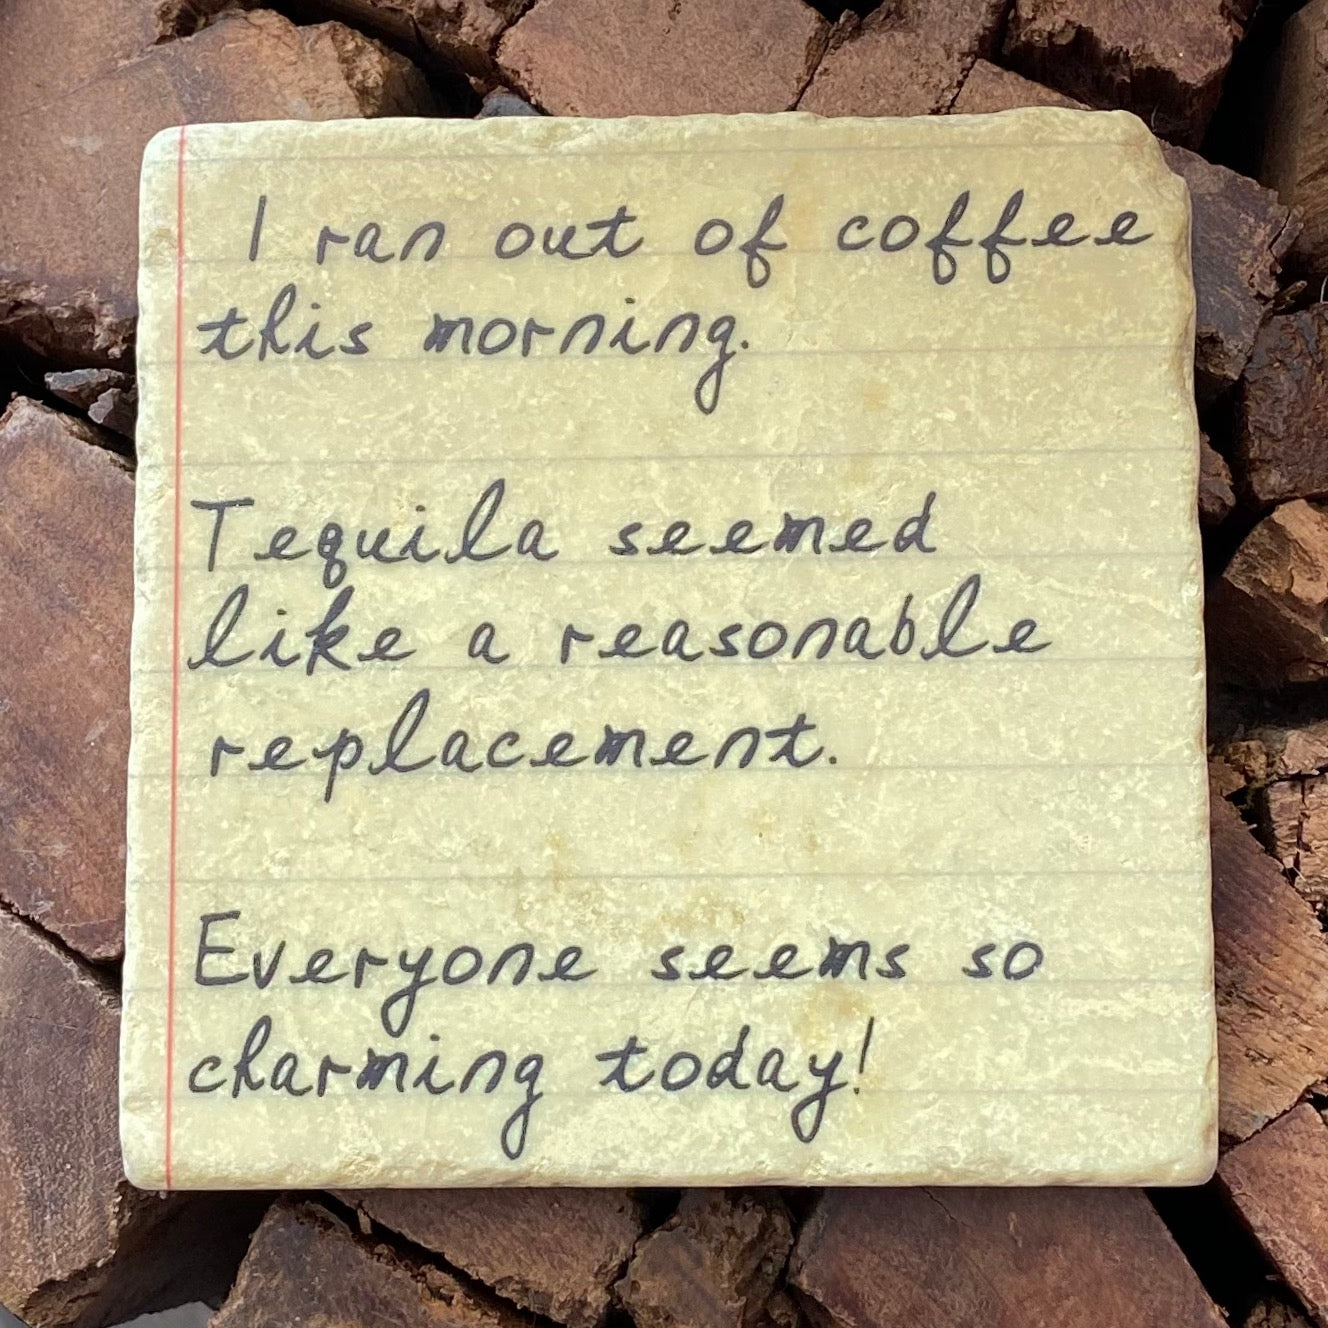 I ran out of coffee
this morning.
Tequila seemed
like a reasonable
replacement.
Everyone seems so
charming today!